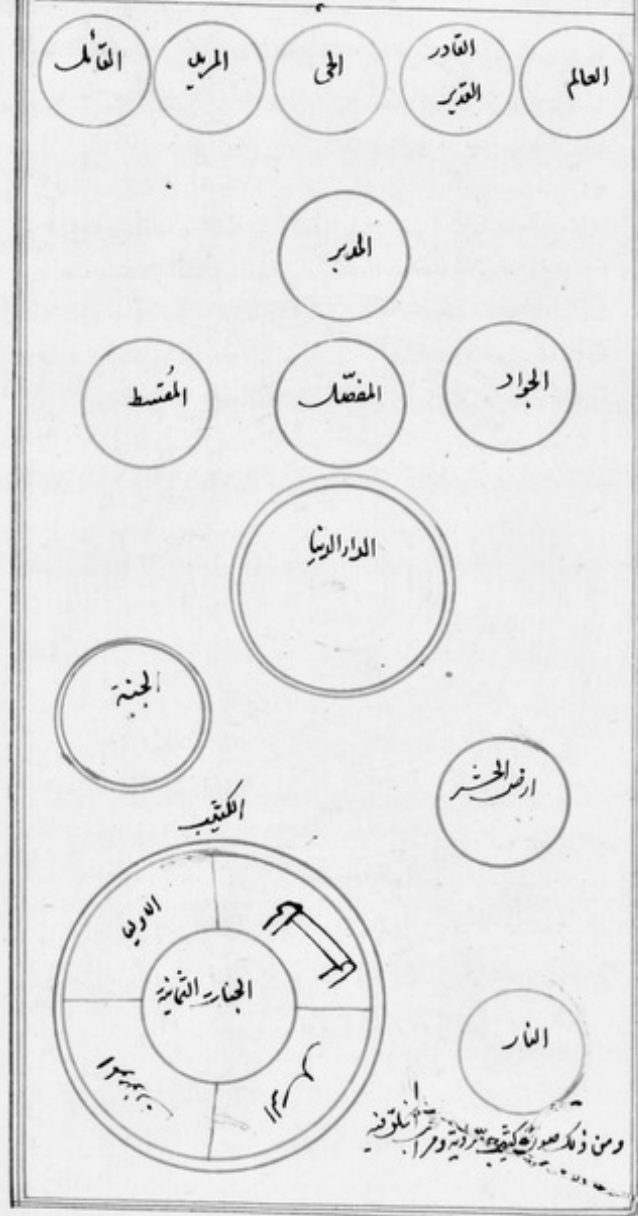 العالم
القادر
القدير
الحي
المريد
القائل
المدبر
الجواد
المفصل
المقسط
الدار الدنيا
الجنة
ارض الحشر
الكثيب
الجنات الثمانية
النار
ومن ذلك صورة كثيب